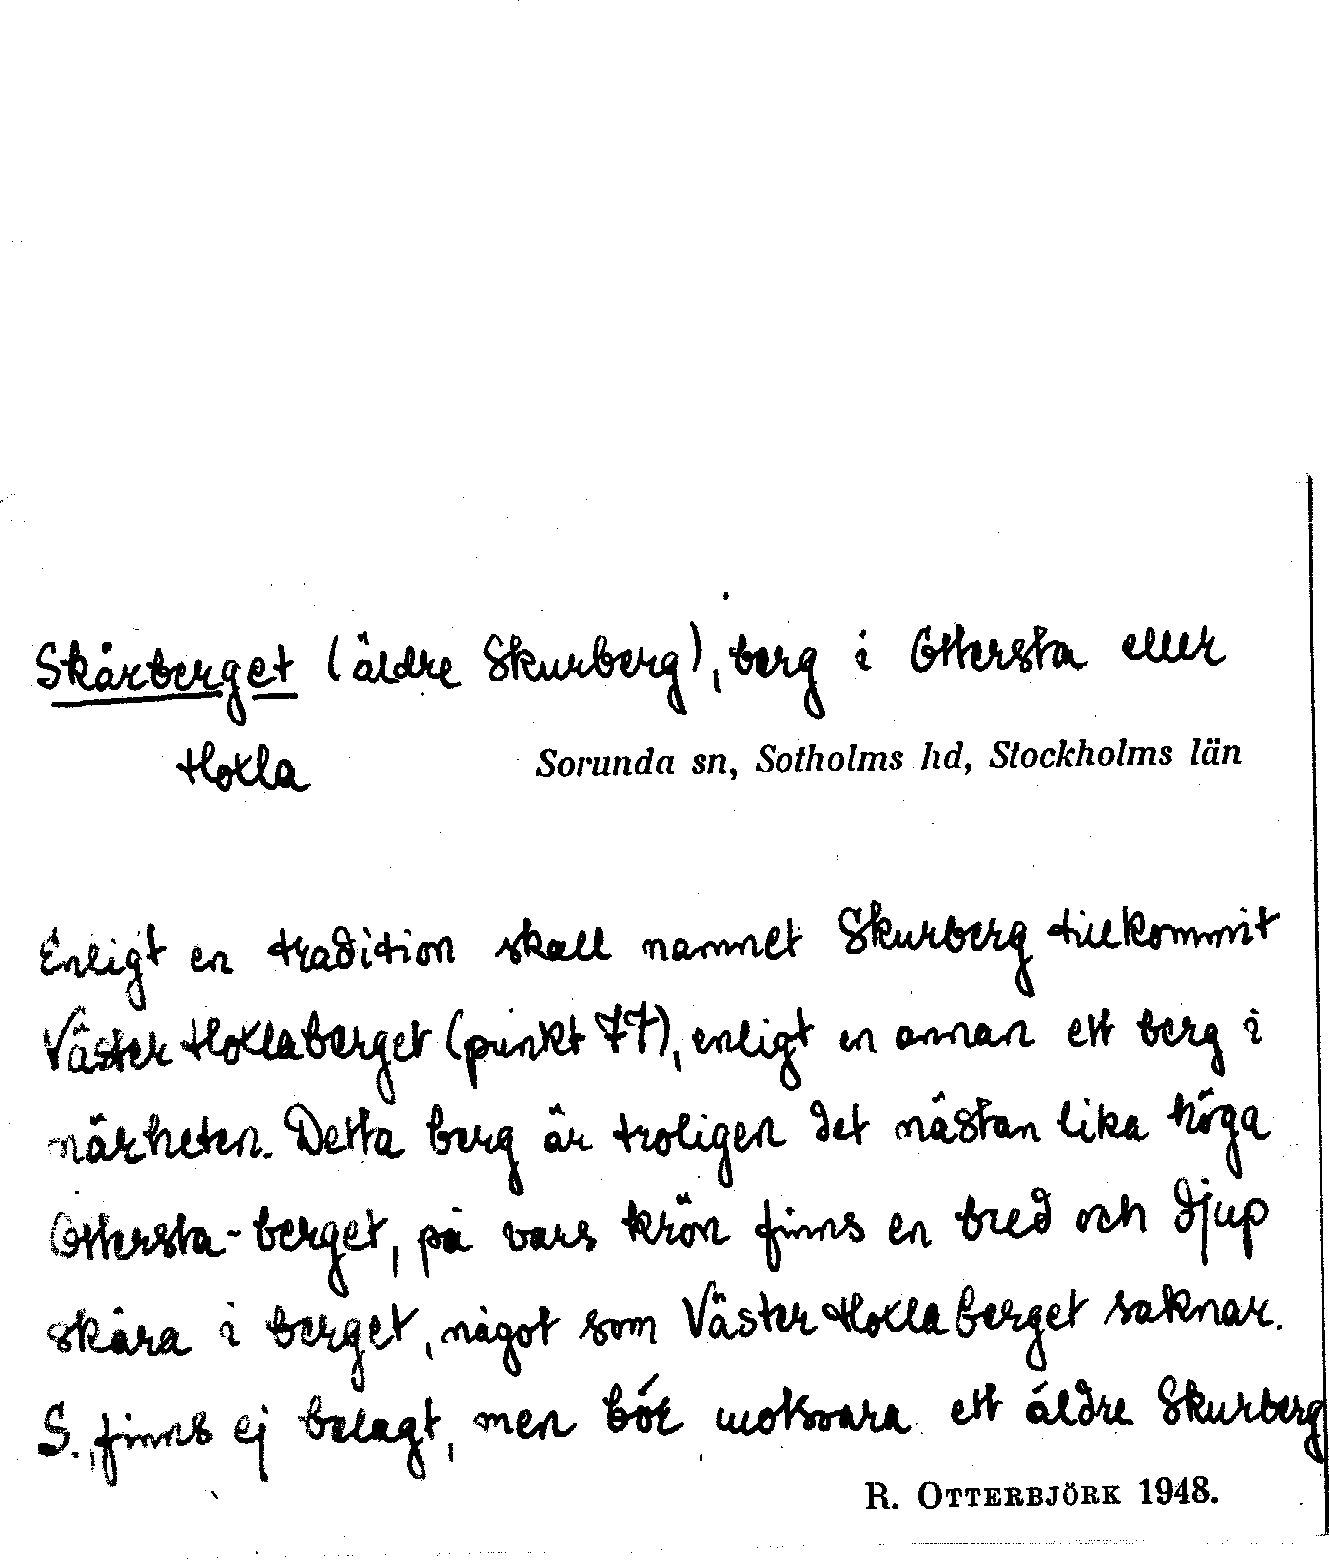 Skårberget (äldre Skurberg), berg i Ottersta eller
Hoxla
Sorunda sn, Sotholms hd, Stockholms län
Enligt en tradition skall namnet Skurberg tillkommit
Väster Hoxlaberget (punkt 77), enligt en annan ett berg i
närheten. Detta berg är troligen det nästan lika höga
Ottersta-berget, på vars krön finns en bred och djup
skåra i berget, något som Väster Hoxlaberget saknar.
S., finns ej belagt, men bör motsvara ett äldre Skurberg
R. OTTERBJÖRK 1948.